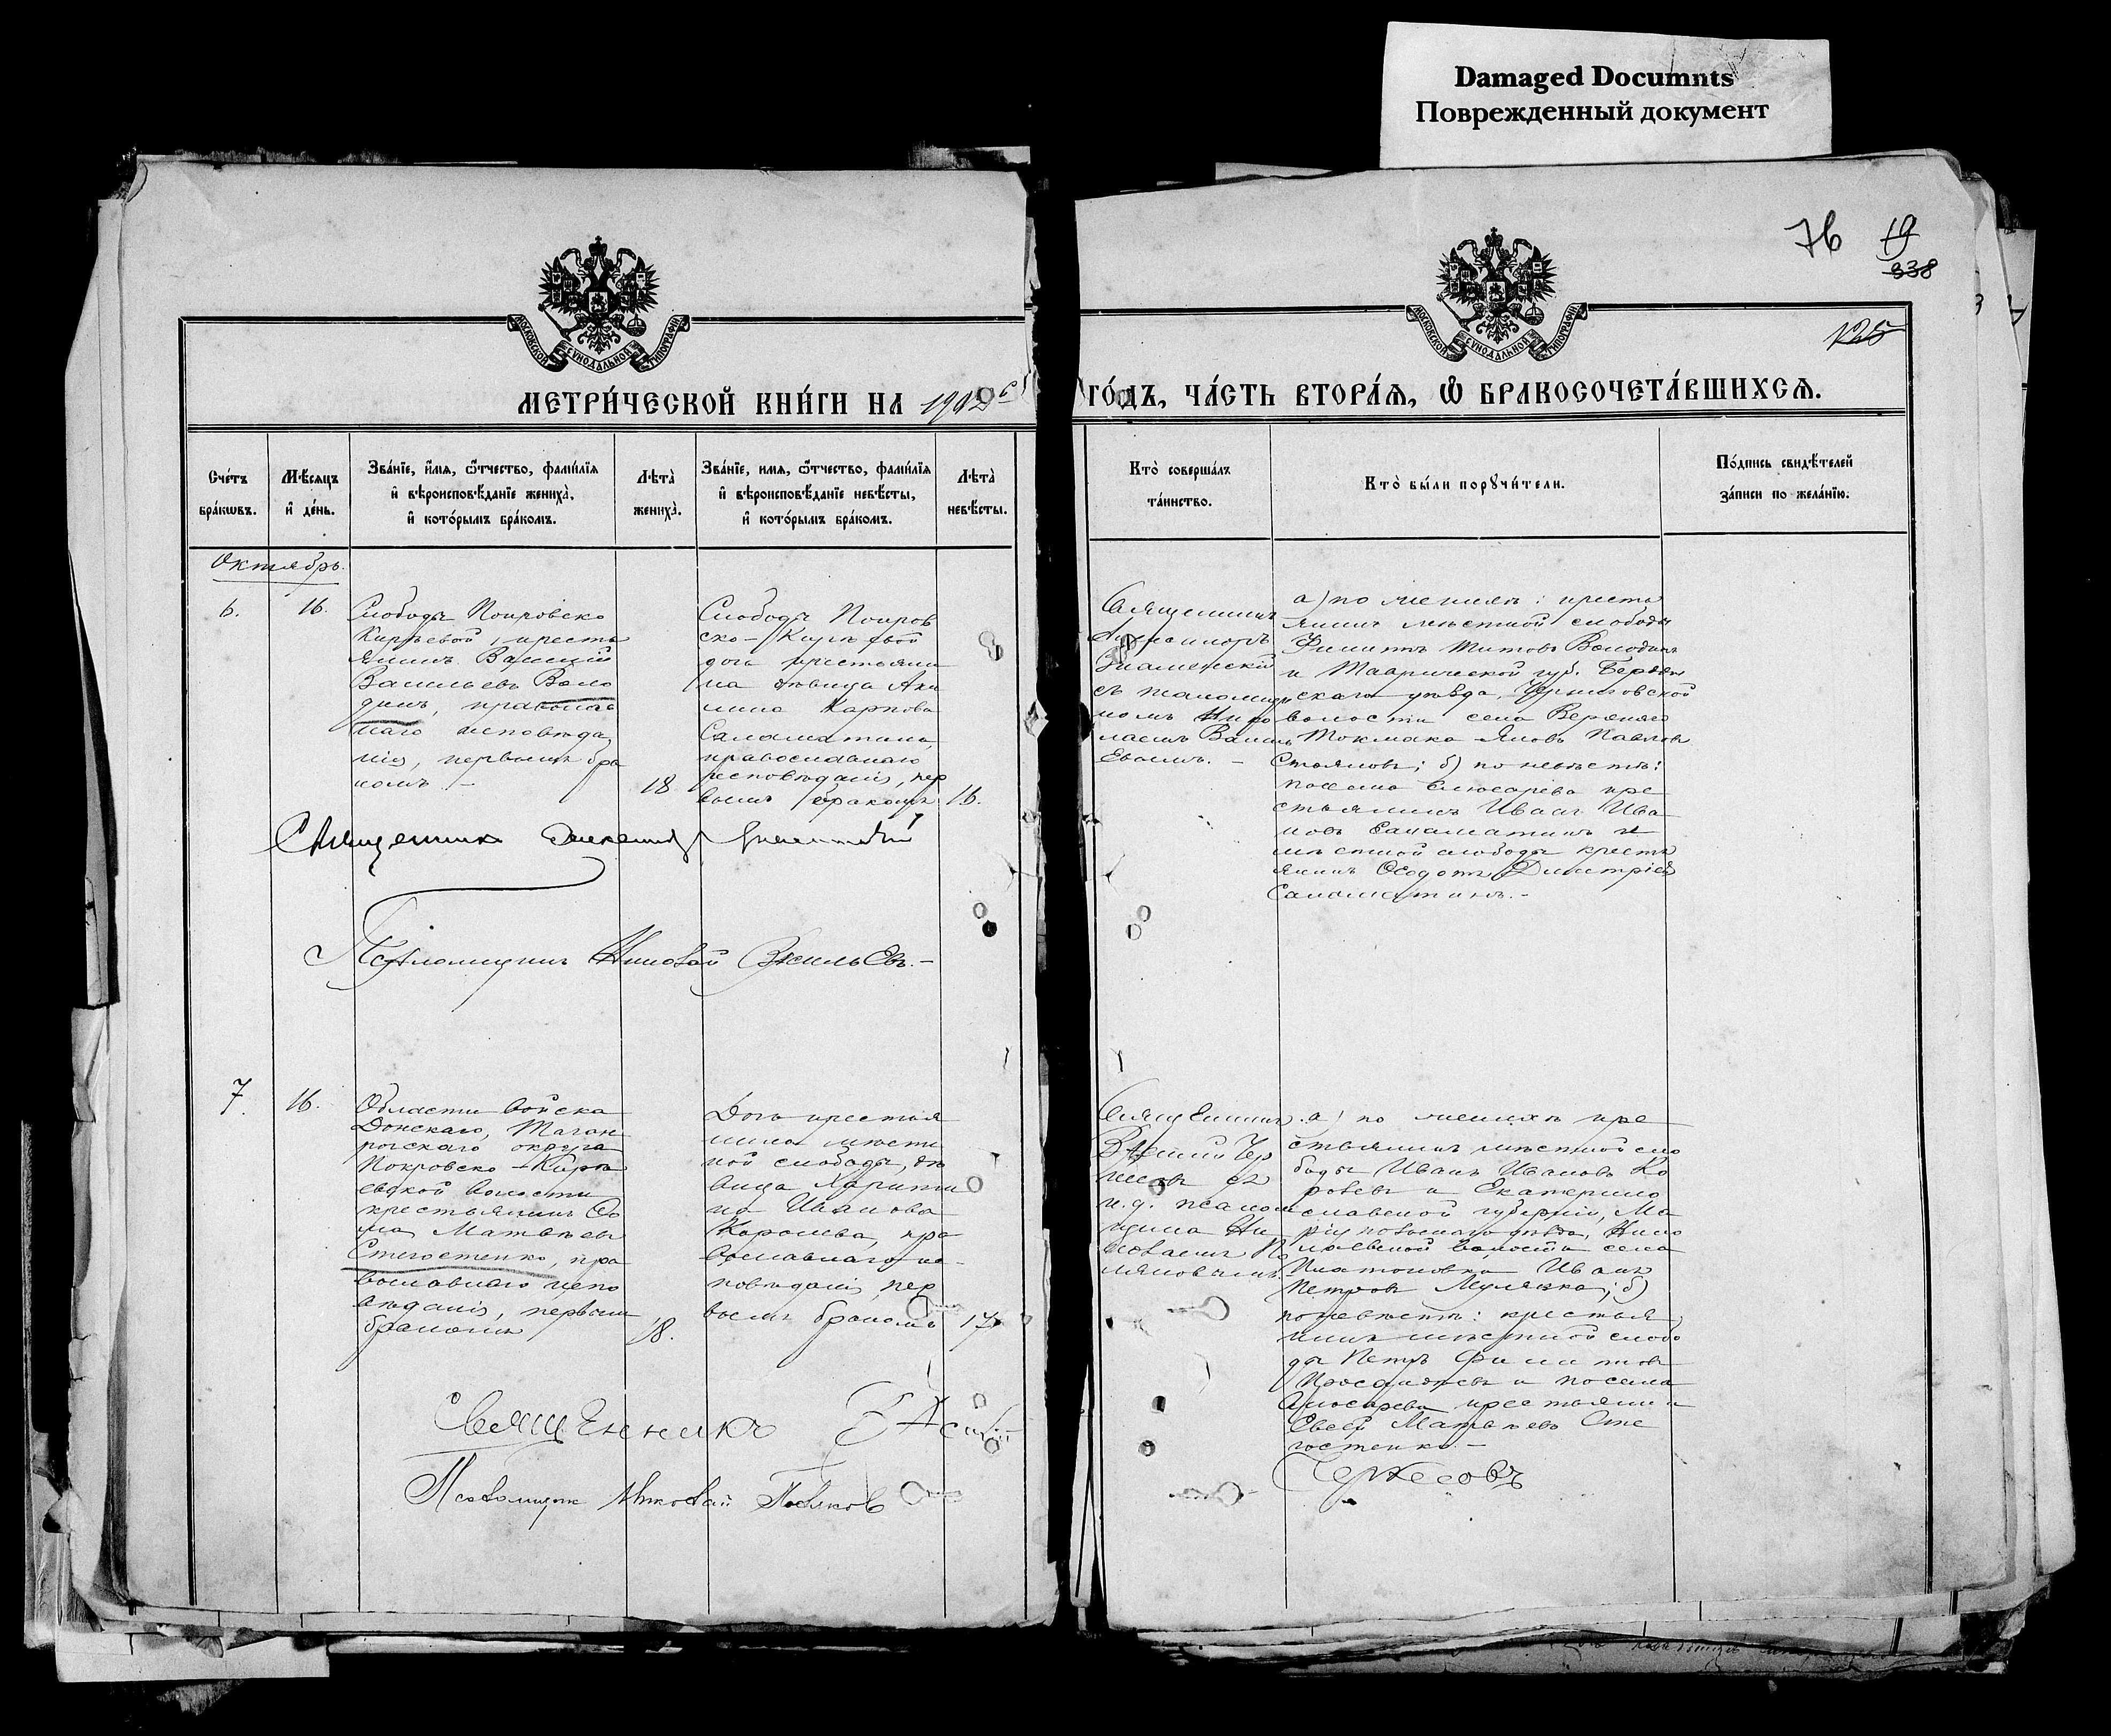 Damaged Documnts
Поврежденный документ
76 19
338
125
МОСКОВСКОЙ СѴНОДАЛЬНОЙ ТИПОГРАФІИ
МОСКОВСКОЙ СѴНОДАЛЬНОЙ ТИПОГРАФІИ
МЕТРИ́ЧЕСКОЙ КНИ́ГИ НА 1902
ГО́ДЪ, ЧА́СТЬ ВТОРА́Я, Ѡ҆ БРАКОСОЧЕТА́ВШИХСЯ.
Сче́тъ
бра́кѡвъ.
Мѣ́сяцъ
и҆ де́нь.
Зва́нїе, и҆́мя, ѻ҆́тчество, фамі́лїя
и҆ вѣроисповѣ́данїе жениха̀,
и҆ кото́рымъ бра́комъ.
Лѣта̀
жениха̀.
Зва́нїе, имя, ѻ҆́тчество, фамі́лїя
и҆ вѣроисповѣ́данїе невѣ́сты,
и҆ кото́рымъ бра́комъ.
Лѣта̀
невѣ́сты.
Кто̀ соверша́лъ
та́инство.
Кто̀ бы́ли порꙋчи́тели.
По́дпись свидѣ́телей
за́писи по жела́нїю.
Октябрь.
6.
16.
Слободы Покровско
Кирѣевой, кресть
янинъ Василій
Васильевъ Воло
динъ, православ
наго исповѣда
нія, первымъ бра
комъ. –
18
Слободы Покров
ско-Кирѣевой
дочь крестьяни
на дѣвица Аки
лина Карпова
Саламатина,
православнаго
исповѣданія, пер
вымъ бракомъ
16.
Священникъ
Александръ
Знаменскій
съ псаломщи
комъ Нико
лаемъ Василь
евымъ. –
а) по женихѣ: кресть
янинъ мѣстной слободы
Филиппъ Титовъ Володинъ
и Таврической губ. Бердян
скаго уѣзда, Черниговской
волости села Верхняго
Токмака Яковъ Павловъ
Стояновъ; б) по невѣстѣ:
поселка Слюсарева кре
стьянинъ Иванъ Ива
новъ Саламатинъ и
мѣстной слободы кресть
янинъ Ѳеодотъ Димитріевъ
Саламатинъ. –
Священникъ Александръ Знаменскій
Псаломщикъ Николай Васильевъ. –
7.
16.
Области войска
Донскаго, Таган
рогскаго округа
Покровско-Кирѣ
евской волости
крестьянинъ Ѳо
ма Матвѣевъ
Стегостенко, пра
вославнаго испо
вѣданія, первымъ
бракомъ
18.
Дочь крестья
нина мѣстн
ной слободы, дѣ
вица Харити
на Иванова
Королева, пра
вославнаго ис-
повѣданія, пер
вымъ бракомъ
17
Священникъ
Василій Чер
кесовъ съ
и. д. псалом
щика Ни
колаемъ По
ляковымъ.
а) по женихѣ кре
стьянинъ мѣстной сло
боды Иванъ Ивановъ Ко
ролевъ и Екатерино
славской губерніи, Ма
ріупольскаго уѣзда, Нико
лаевской волости села
Платоновки Иванъ
Петровъ Мулявка; б)
по невѣстѣ: крестья
нинъ мѣстной слобо
ды Петръ Филиповъ
и поселка
Слюсарева крестьянинъ
Евсей Матвѣевъ Сте
гостенко. –
Священникъ Василій
Черкесовъ
Псаломщикъ Николай Поляковъ